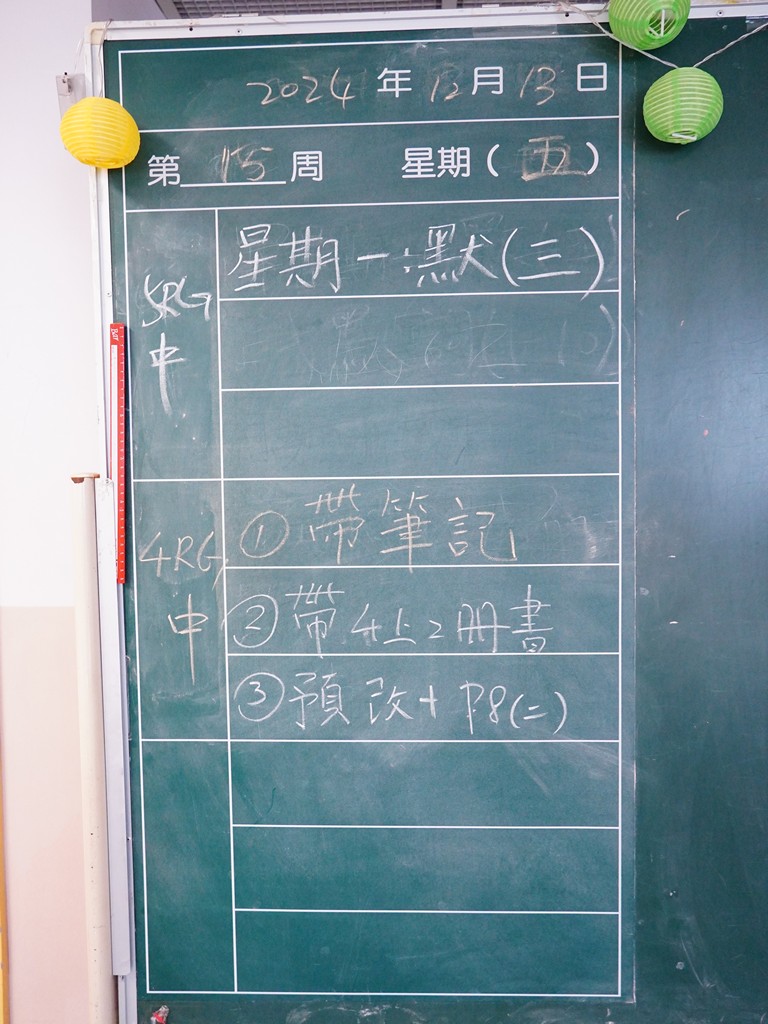 2024 年 12 月 13 日
第 15 周 星期（五）
5RG 中
星期一:默(三)
4RG 中
① 帶筆記
② 帶4上2冊書
③ 預改+P8(二)